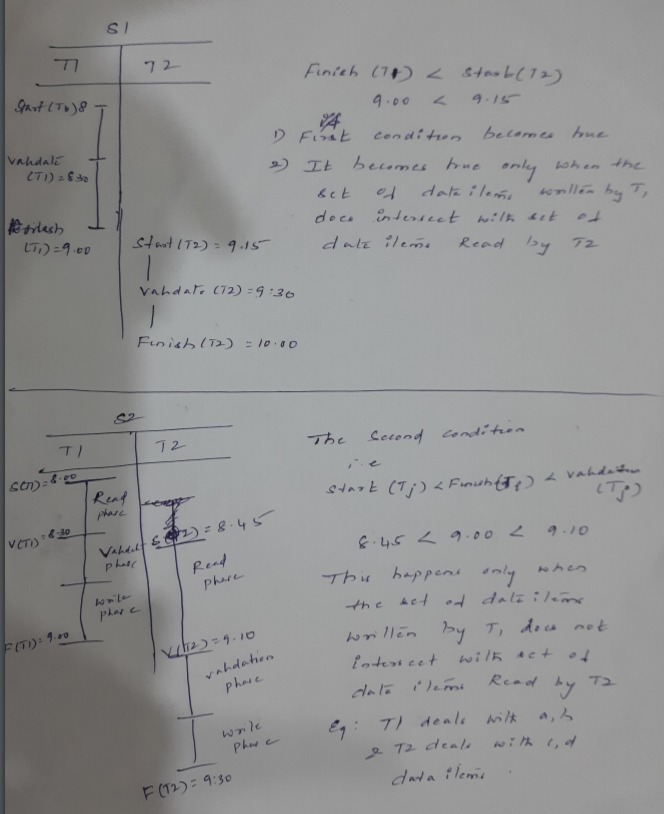 S1
T1 T2
Start (T1) 8
Validate
(T1) = 8.30
Finish
(T1) = 9.00
Start (T2) = 9.15
Validate (T2) = 9:30
Finish (T2) = 10.00
Finish (T1) < Start (T2)
9.00 < 9.15
1) First condition becomes true
2) It becomes true only when the
set of data items written by T1
does intersect with set of
data items Read by T2
S2
T1 T2
S(T1) = 8.00
Read
phase
V(T1) = 8.30
Validate
phase
write
phase
F(T1) = 9.00
S(T2) = 8.45
Read
phase
V(T2) = 9.10
validation
phase
write
phase
F(T2) = 9:30
The Second condition
i.e
Start (Tj) < Finish (Ti) < validation
(Tj)
8.45 < 9.00 < 9.10
This happens only when
the set of data items
written by T1 does not
intersect with set of
data items Read by T2
Eg: T1 deals with a,b
& T2 deals with c,d
data items.